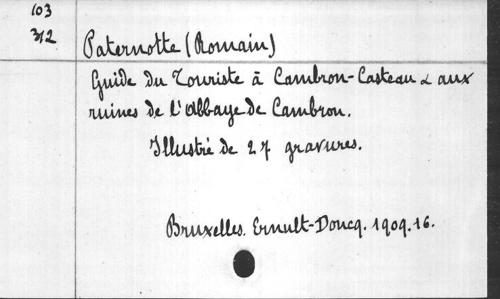 103
312
Paternotte (Romain)
Guide du Touriste à Cambron-Casteau & aux
ruines de l'Abbaye de Cambron.
Illustré de 27 gravures.
Bruxelles. Ernult-Doncq. 1909. 16.